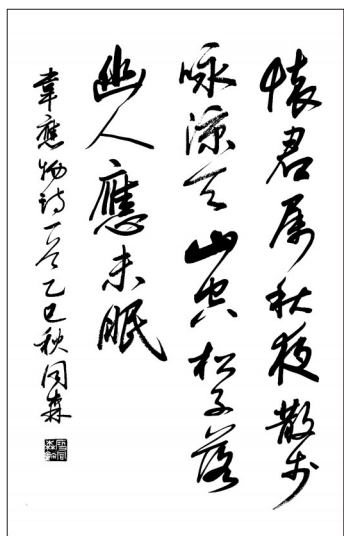 懷君属秋夜散步
咏凉天山空松子落
幽人應未眠
韋應物诗一首乙巳秋同森